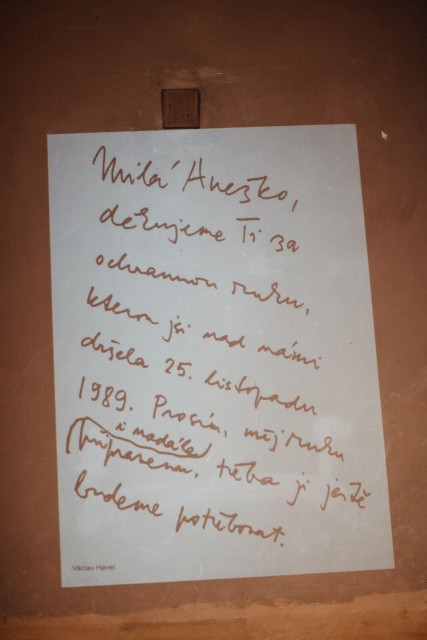 Milá Anežko,
děkujeme Ti za
ochrannou ruku,
kterou jsi nad námi
držela 25. listopadu
1989. Prosím, měj ruku
i nadále
připravenou, třeba ji ještě
budeme potřebovat.
Václav Havel